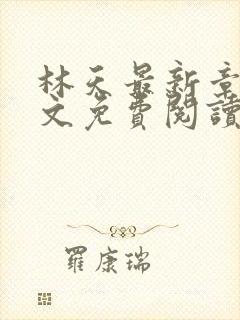 林天最新章
文免費閱讀
羅康瑞